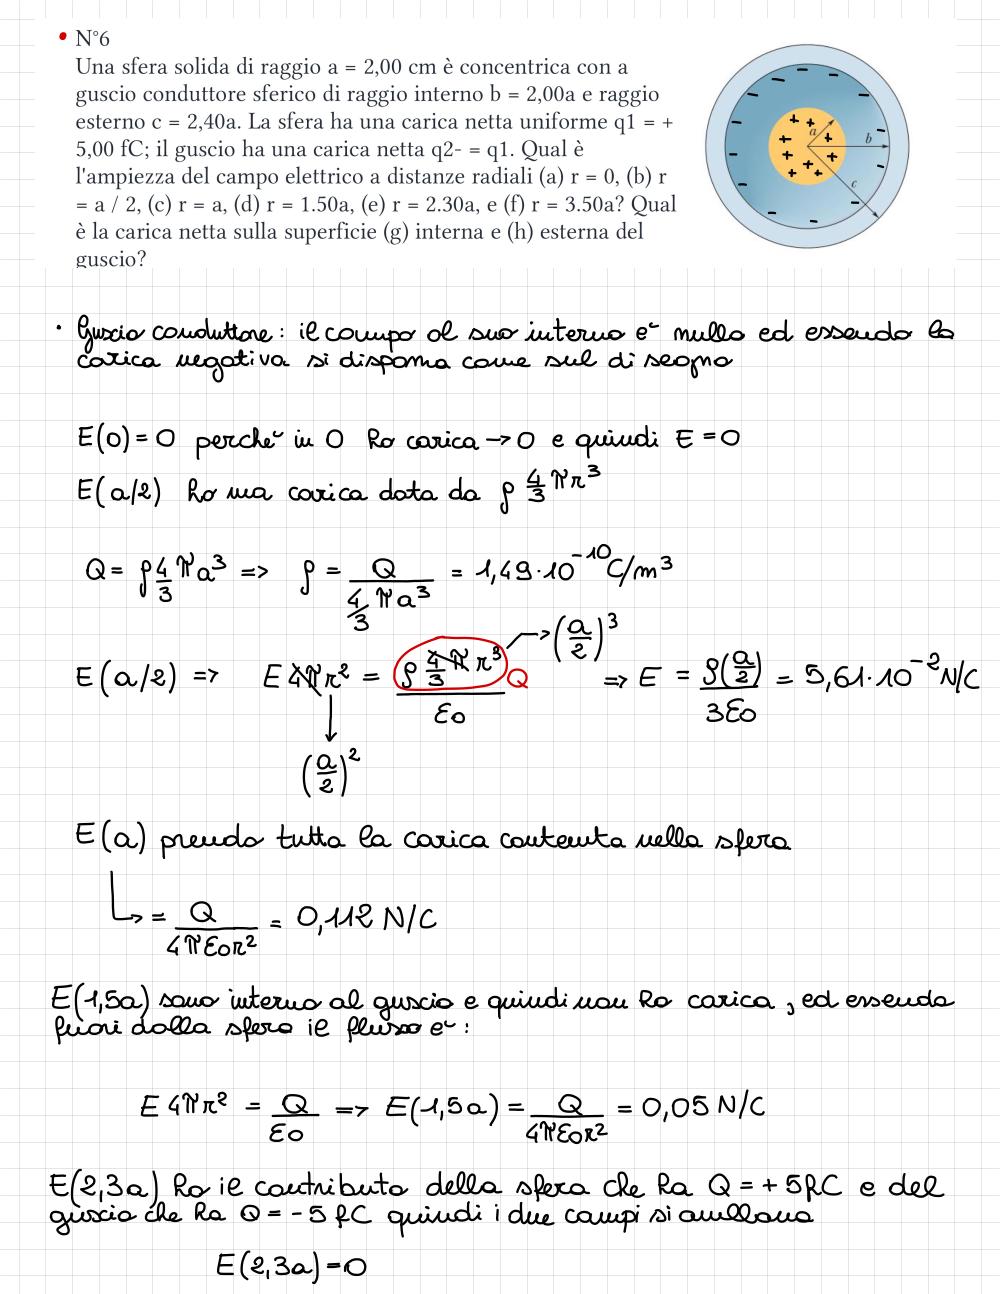 • N°6
Una sfera solida di raggio a = 2,00 cm è concentrica con a
guscio conduttore sferico di raggio interno b = 2,00a e raggio
esterno c = 2,40a. La sfera ha una carica netta uniforme q1 = +
5,00 fC; il guscio ha una carica netta q2- = q1. Qual è
l'ampiezza del campo elettrico a distanze radiali (a) r = 0, (b) r
= a / 2, (c) r = a, (d) r = 1.50a, (e) r = 2.30a, e (f) r = 3.50a? Qual
è la carica netta sulla superficie (g) interna e (h) esterna del
guscio?
a
b
c
• Guscio conduttore: il campo al suo interno e' nullo ed essendo la
carica negativa si dispoma come sul disegno
E(0) = 0 perche' in 0 ho carica → 0 e quindi E = 0
E(a/2) ho una carica data da ρ 4/3 π r³
Q = ρ 4/3 π a³ => ρ = Q / (4/3 π a³) = 1,49·10⁻¹⁰ C/m³
E(a/2) => E 4π r² = ρ 4/3 π r³ / ε0 → (a/2)³ Q => E = ρ(a/2) / 3ε0 = 5,61·10⁻² N/C
(a/2)²
E(a) prendo tutta la carica contenuta nella sfera
↳ = Q / 4πε0r² = 0,112 N/C
E(1,5a) sono interno al guscio e quindi non ho carica, ed essendo
fuori dalla sfera il flusso e':
E 4π r² = Q / ε0 => E(1,5a) = Q / 4πε0r² = 0,05 N/C
E(2,3a) ho il contributo della sfera che ha Q = + 5fC e del
guscio che ha Q = - 5 fC quindi i due campi si annullano
E(2,3a) = 0